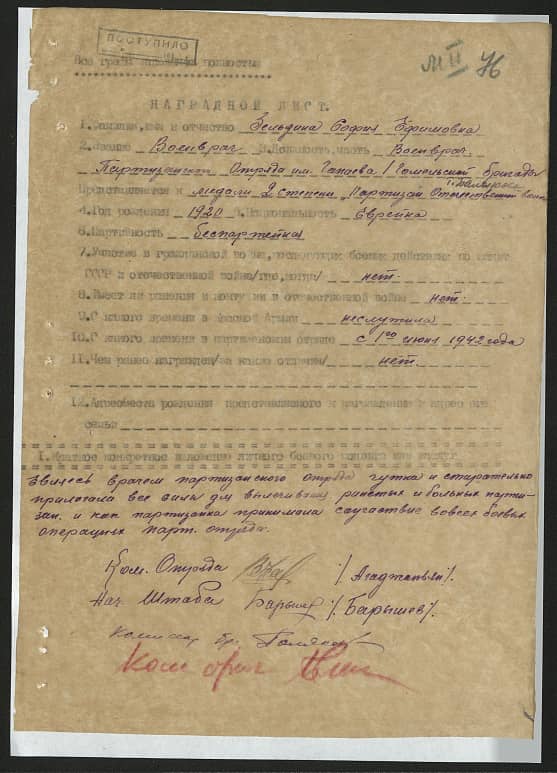 ПОСТУПИЛО
76
Все графы заполнять полностью
НАГРАДНОЙ ЛИСТ.
1. Фамилия, имя и отчество Гельдина София Ефимовна
2. Звание Военврач 3. Должность, часть Военврач
Партизанского Отряда им. Чапаева 1 Гомельской бригады
Представляется к медали 2 степени Партизан Отечественной войны
4. Год рождения 1920 5. Национальность Еврейка
6. Партийность беспартейная
7. Участие в гражданской войне, последующих боевых действиях по защите
СССР и отечественной войне /где, когда/ нет.
8. Имеет ли ранения и контузии в отечественной войне нет.
9. С какого времени в Красной Армии неслужила
10. С какого времени в партизанском отряде с 1го июня 1942 года
11. Чем ранее награжден /за какие отличия/ нет.
12. Адрес места рождения представляемого к награждению и адрес его
семьи
I. Краткое конкретное изложение личного боевого подвига или заслуг
Являясь врачем партизанского отряда чутко и старательно
прилагала все силы для вылечивания раненых и больных парти-
зан. и как партизанка принимала соучастие вовсех боевых
операциях парт. отряда.
Ком. Отряда /Агаджаньян/.
Нач. Штаба Барышев /Барышев/.
Комиссар бр.
Ком бриг